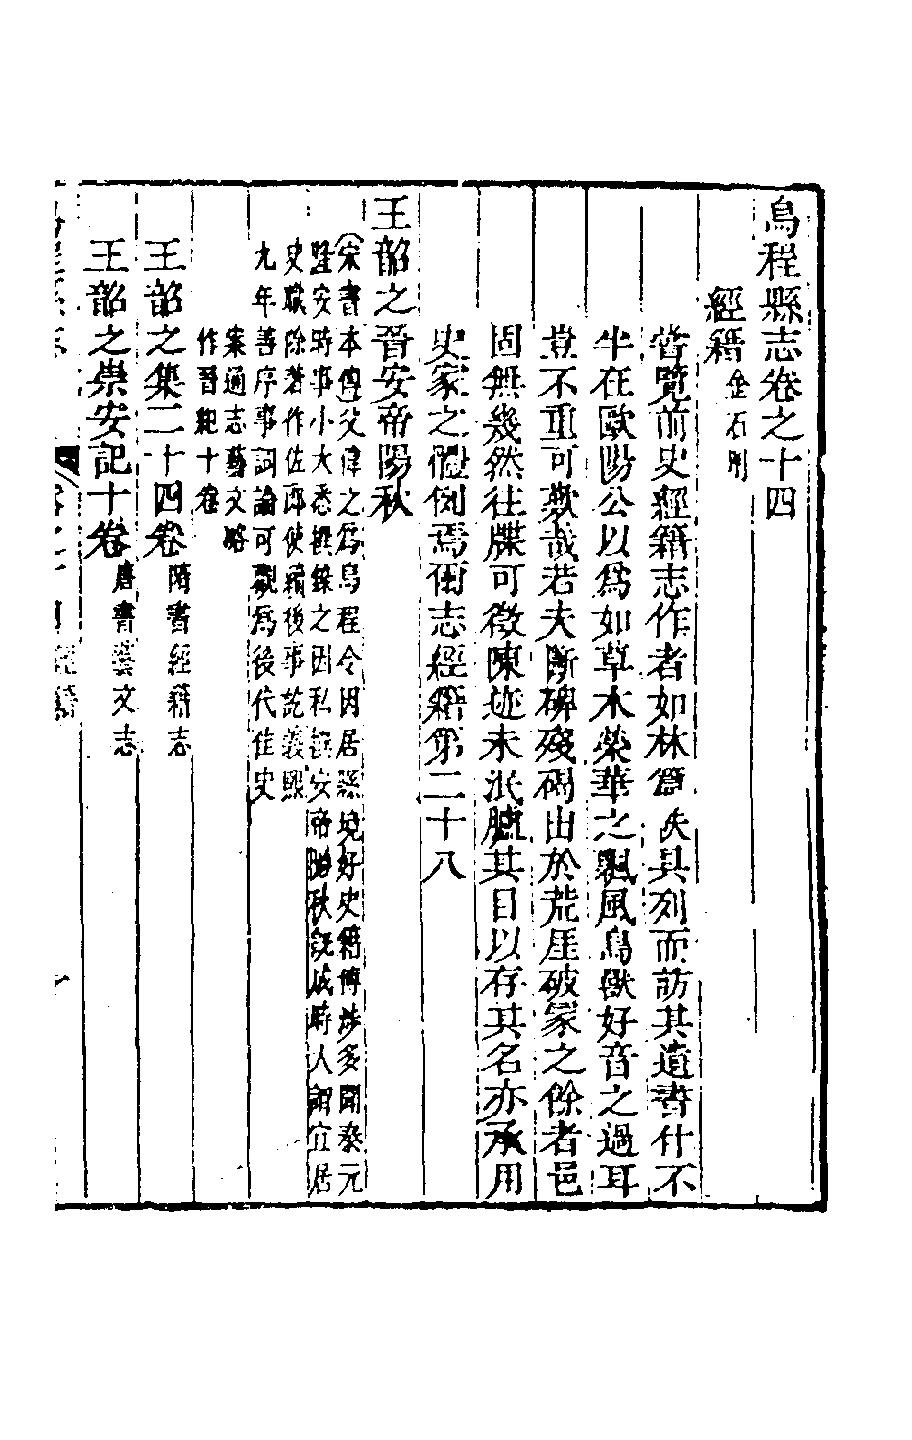 烏程縣志卷之十四
經籍金石附
嘗覽前史經籍志作者如林篇帙具列而訪其遺書什不
半在歐陽公以爲如草木榮華之飄風鳥獸好音之過耳
豈不重可歎哉若夫斷碑殘碣出於荒厓破冢之餘者邑
固無幾然往牒可徵陳迹未泯臚其目以存其名亦承用
史家之體例焉爾志經籍第二十八
王韶之晉安帝陽秋
宋書本傳父偉之爲烏程令因居縣境好史籍博涉多聞泰元
隆安時事小大悉撰錄之因私撰安帝陽秋旣成時人謂宜居
史職除著作佐郎使續後事訖義熙
九年善序事詞論可觀爲後代佳史
案通志藝文略
作晉紀十卷
王韶之集二十四卷隋書經籍志
王韶之崇安記十卷唐書藝文志